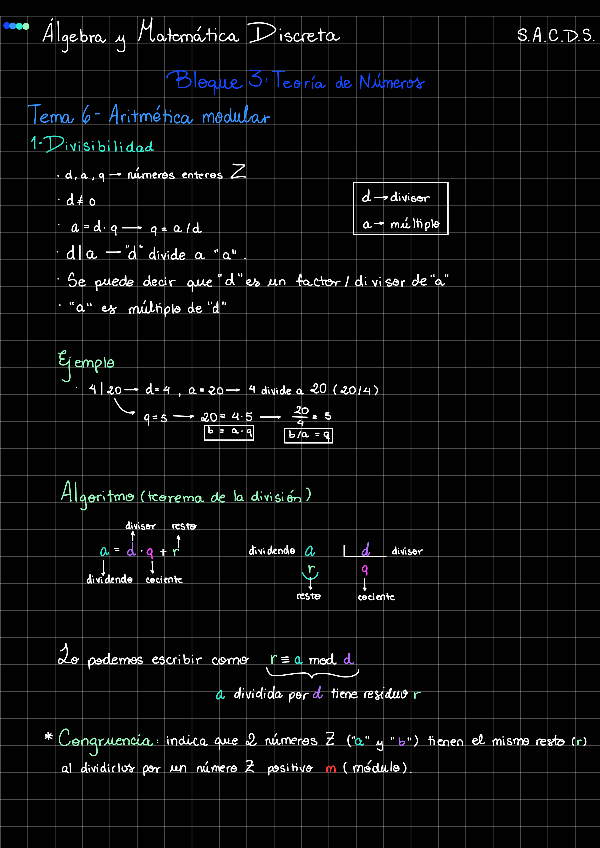 Álgebra y Matemática Discreta
S.A.C.D.S.
Bloque 3: Teoría de Números
Tema 6- Aritmética modular
1-Divisibilidad
· d, a, q → números enteros Z
· d ≠ 0
· a = d · q → q = a/d
· d|a — "d" divide a "a".
· Se puede decir que "d" es un factor/divisor de "a"
· "a" es múltiplo de "d"
d → divisor
a → múltiplo
Ejemplo
· 4|20 → d=4, a=20 — 4 divide a 20 (20/4)
q=5 → 20 = 4·5 — 20/4 = 5
b = a·q
b/a = q
Algoritmo (teorema de la división)
divisor resto
a = d · q + r
dividendo cociente
dividendo a d divisor
r q
resto cociente
Lo podemos escribir como r ≡ a mod d
a dividida por d tiene residuo r
* Congruencia: indica que 2 números Z ("a" y "b") tienen el mismo resto (r)
al dividirlos por un número Z positivo m (módulo).